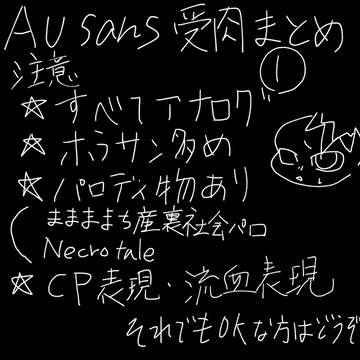 AU sans 受肉まとめ
①
注意
☆すべてアナログ
☆ホラサン多め
☆パロディ物あり
(まままままち産裏社会パロ
Necrotale
☆CP表現・流血表現
それでもOKな方はどうぞ